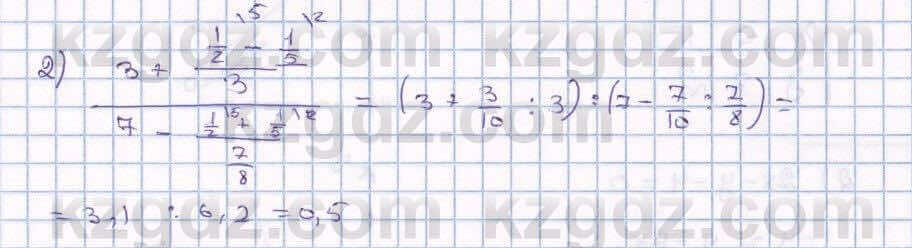 2) (3 + (1/2 \5 − 1/5 \2)/3) / (7 − (1/2 \5 + 1/5 \2)/(7/8)) = (3 + 3/10 : 3) : (7 − 7/10 : 7/8) =
= 3,1 : 6,2 = 0,5
kzgdz.com
kzgdz.com
kzgdz.com
kzgdz.com